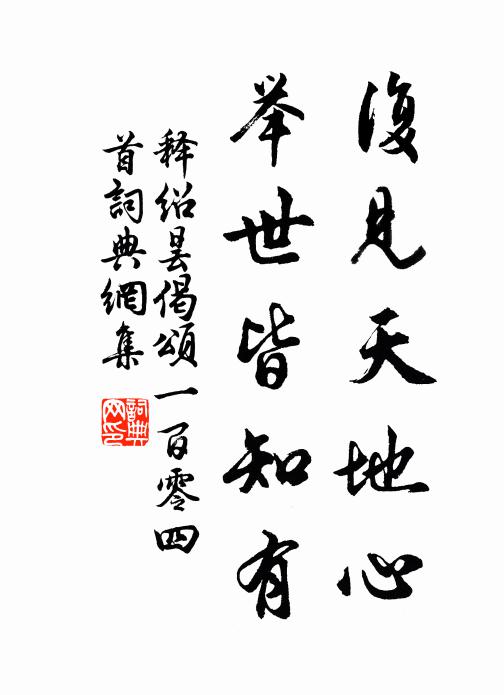 復見天地心
举世皆知有
释绍昙偈頌一百零四
首詞典網集
詞典网印